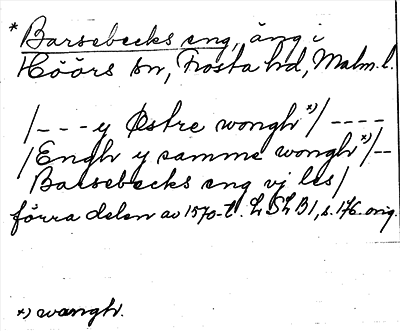 * Barsebecks eng, äng i
Höörs sn, Frosta hd, Malm. l.
/- - - y Østre wongh *)/ - - - -
/Engh y samme wongh *)/ - -
Barsebecks eng vj les/
förra delen av 1570-t. LSLB1, s. 176. orig.
*) wangh.